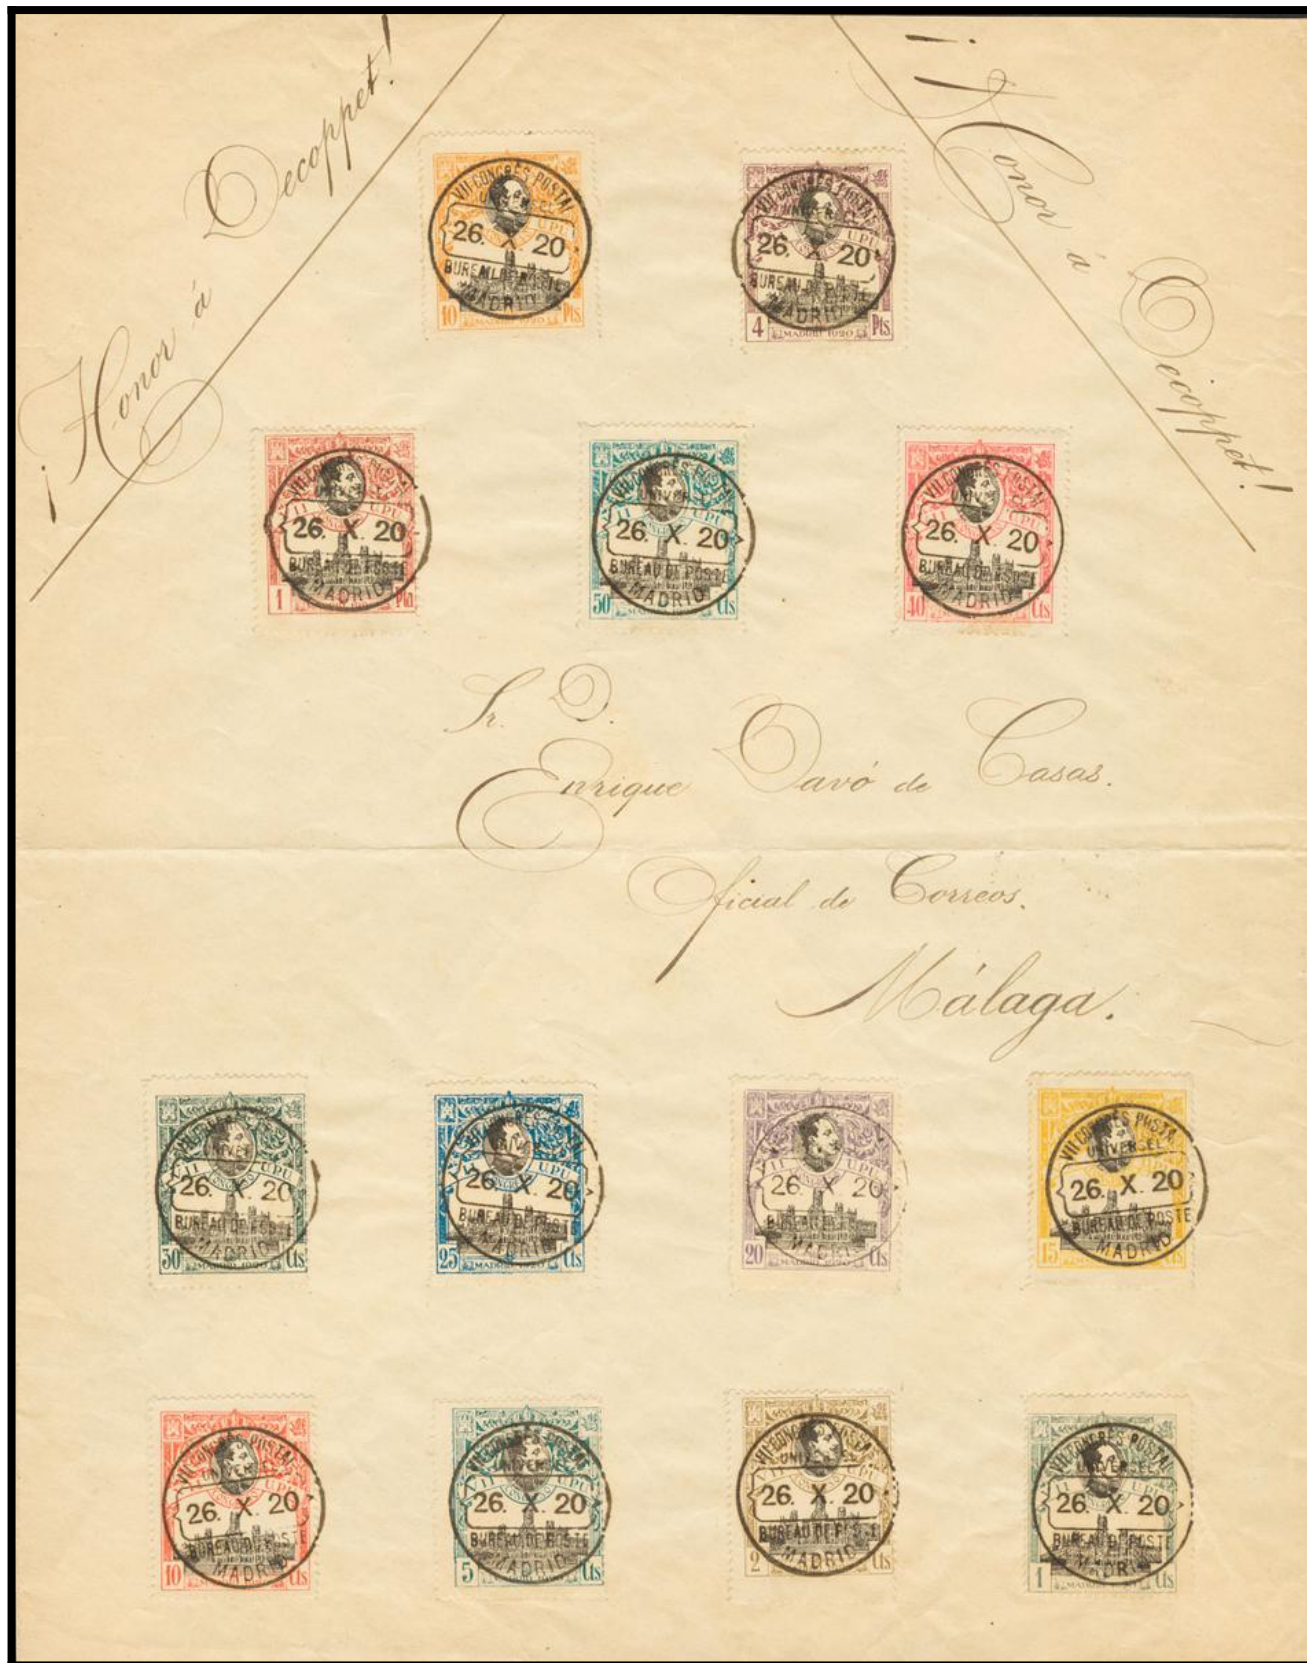 ¡Honor á Decoppet!
¡Honor á Decoppet!
VII CONGRÈS POSTAL
UNIVERSEL
UPU
26. X. 20
BUREAU DE POSTE
MADRID
10 Pts
VII CONGRÈS POSTAL
UNIVERSEL
UPU
26. X. 20
BUREAU DE POSTE
MADRID
4 MADRID 1920 Pts
VII CONGRÈS POSTAL
UPU
26. X. 20
BUREAU DE POSTE
MADRID
1 Pta
VII CONGRÈS POSTAL
UNIVERSEL
UPU
26. X. 20
BUREAU DE POSTE
MADRID
50 Cts
VII CONGRÈS POSTAL
UNIVERSEL
UPU
26. X. 20
BUREAU DE POSTE
MADRID
40 Cts
Sr. D.
Enrique Davó de Casas.
Oficial de Correos.
Málaga.
UNIVERSEL
UPU
26. X. 20
BUREAU DE POSTE
MADRID
30 MADRID 1920 Cts
VII CONGRÈS POSTAL
UPU
CONGRESO
26. X. 20
BUREAU DE POSTE
MADRID
25 MADRID 1920 Cts
UPU
26. X. 20
BUREAU DE POSTE
MADRID
20 MADRID 1920 Cts
VII CONGRÈS POSTAL
UNIVERSEL
26. X. 20
BUREAU DE POSTE
MADRID
15 Cts
VII CONGRÈS POSTAL
UNIVERSEL
UPU
26. X. 20
BUREAU DE POSTE
MADRID
10 Cts
VII CONGRÈS POSTAL
UNIVERSEL
26. X. 20
BUREAU DE POSTE
MADRID
5 Cts
VII CONGRÈS POSTAL
UNIVERSEL
UPU
26. X. 20
BUREAU DE POSTE
MADRID
2 Cts
VII CONGRÈS POSTAL
UNIVERSEL
UPU
26. X. 20
BUREAU DE POSTE
MADRID
1 Cts